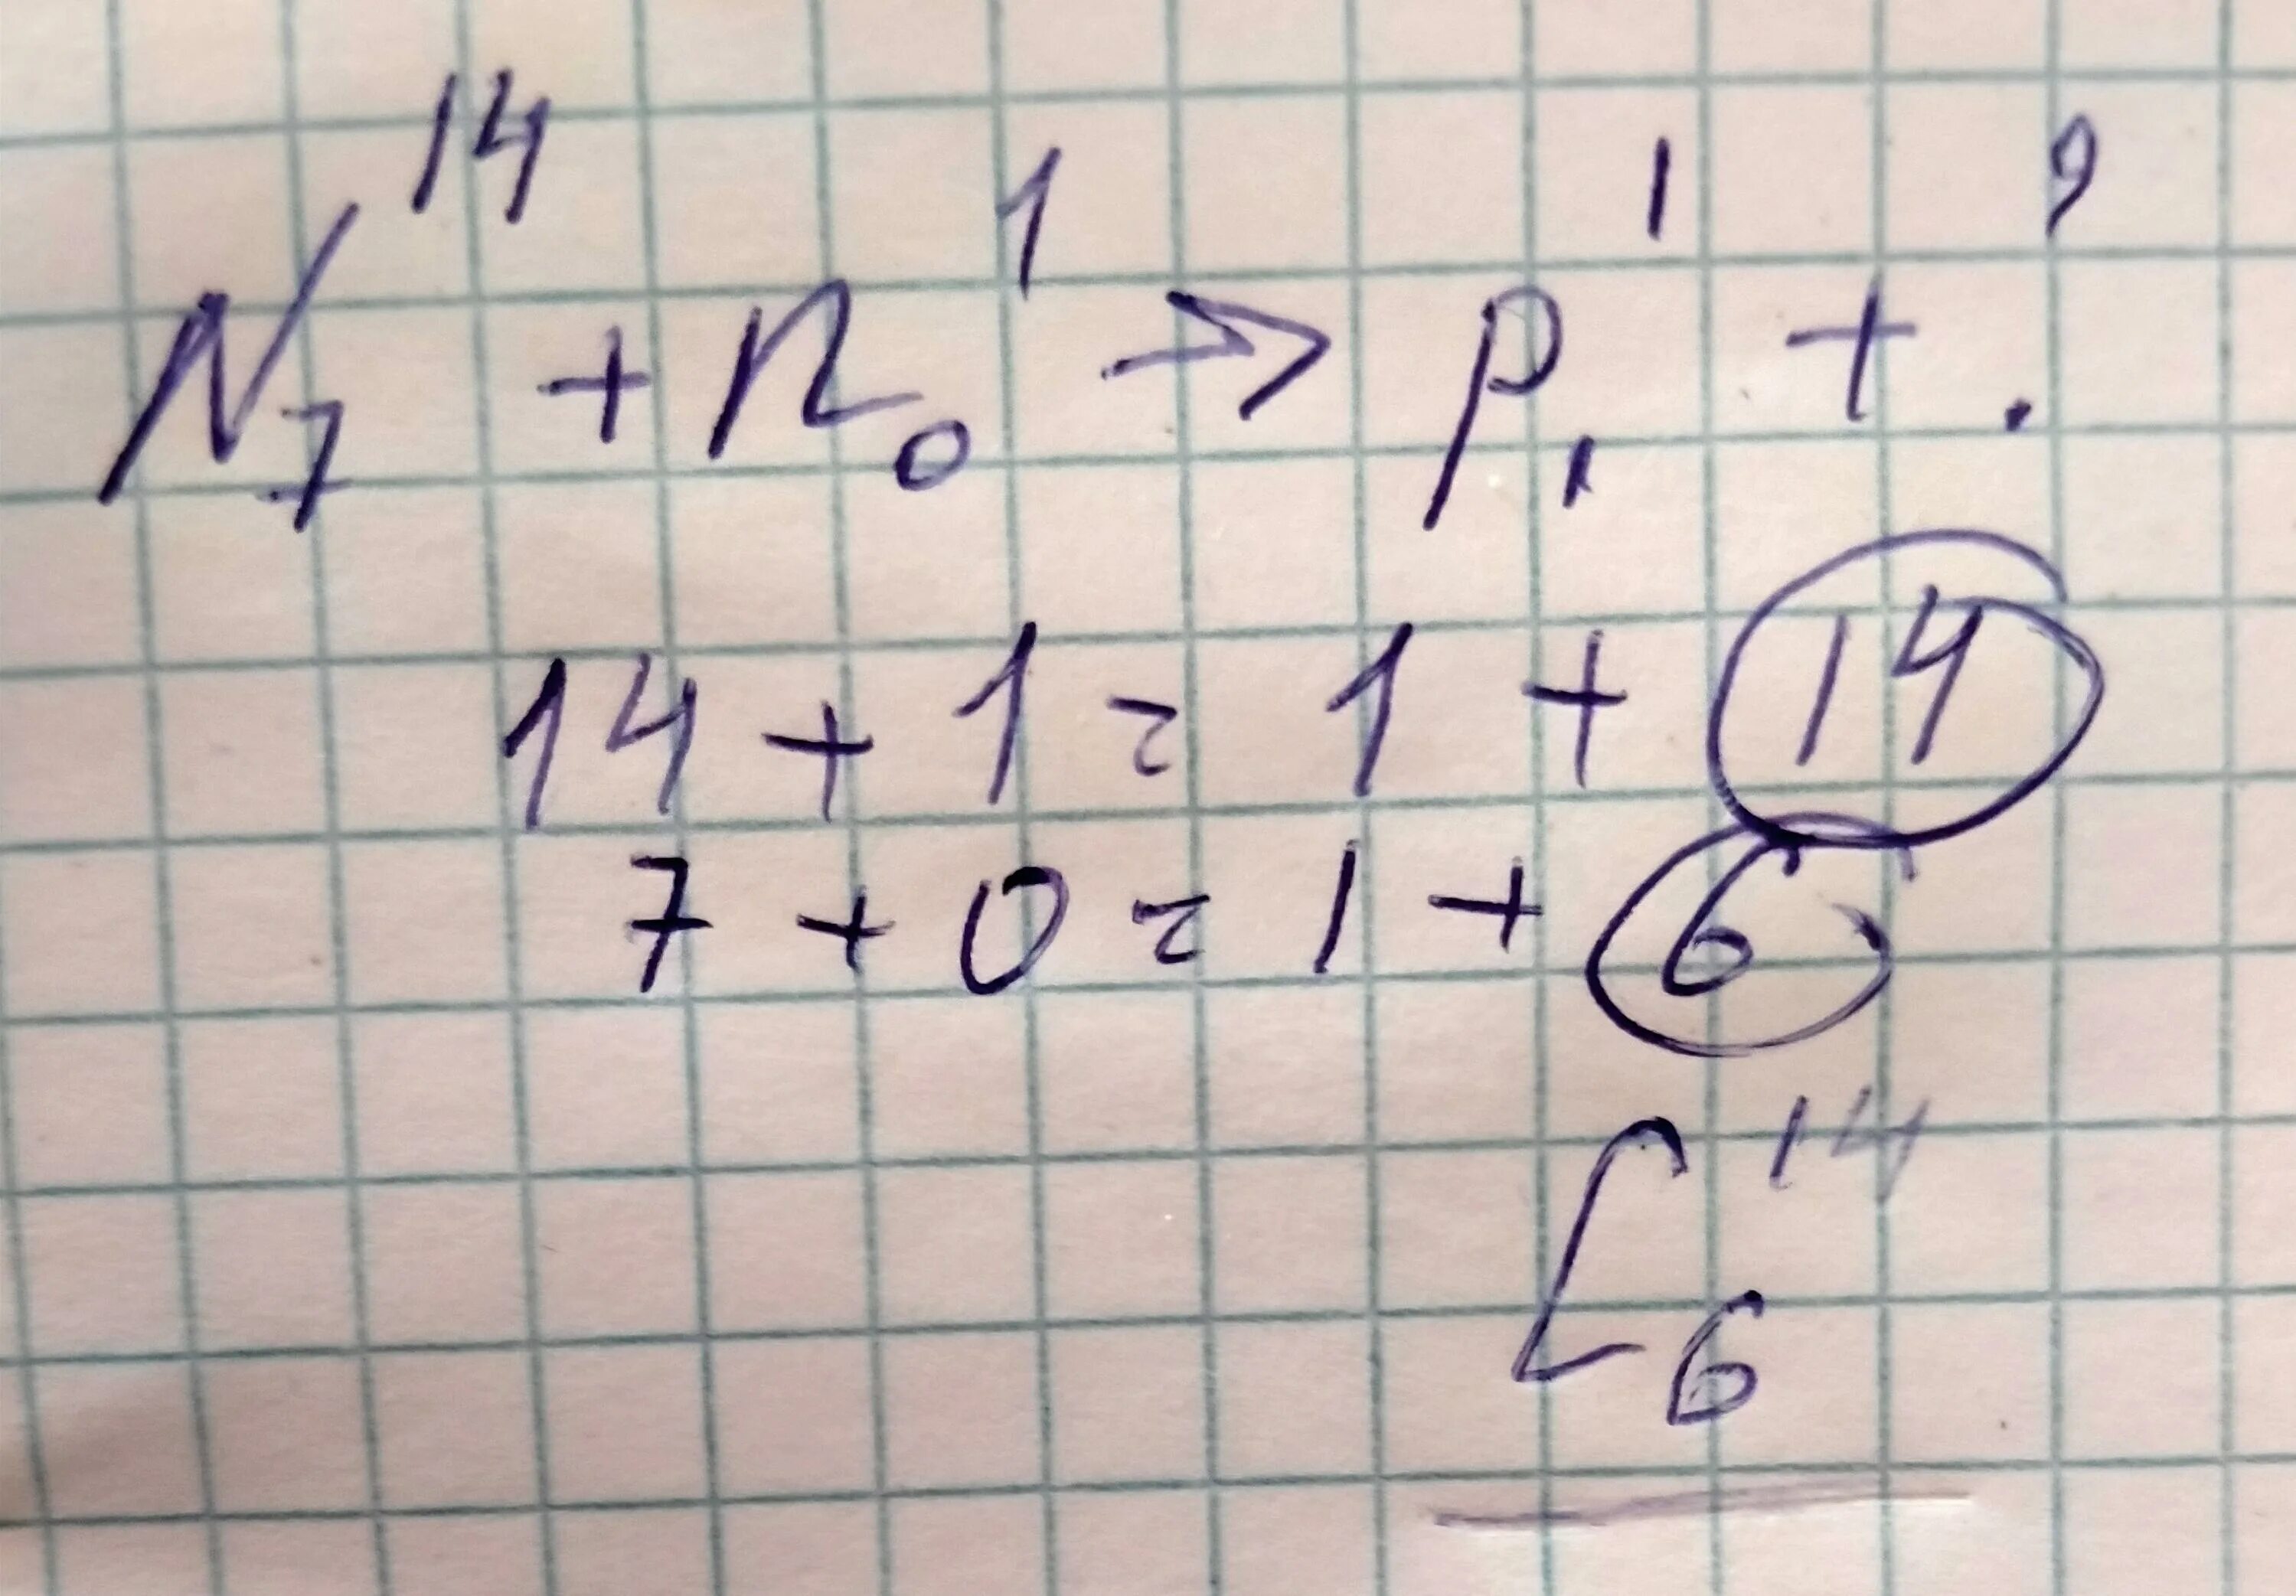 N₇¹⁴ + n₀¹ → p₁¹ + ?
14 + 1 = 1 + 14
7 + 0 = 1 + 6
C₆¹⁴